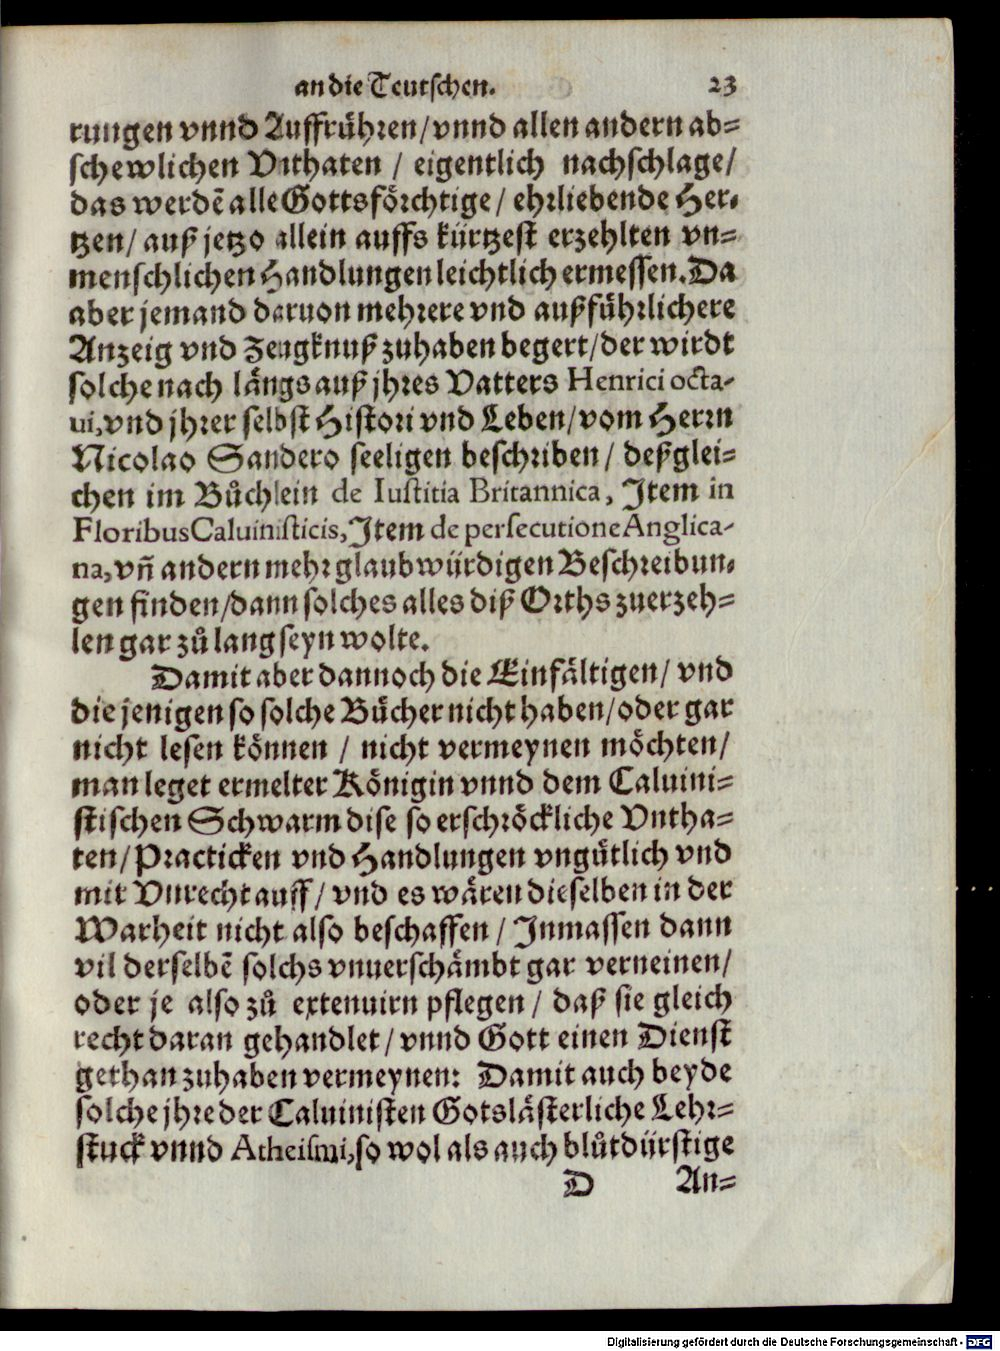 an die Teutschen. 23
rungen vnnd Auffrůhren/vnnd allen andern ab=
schewlichen Vnthaten / eigentlich nachschlage/
das werdẽ alle Gottsförchtige/ ehrliebende Her=
tzen/ auß jetzo allein auffs kürtzest erzehlten vn=
menschlichen Handlungen leichtlich ermessen. Da
aber jemand daruon mehrere vnd außführlichere
Anzeig vnd Zeugknuß zuhaben begert/der wirdt
solche nach längs auß jhres Vatters Henrici octa-
ui, vnd jhrer selbst Histori vnd Leben/ vom Herrn
Nicolao Sandero seeligen beschriben / deßglei=
chen im Bůchlein de Iustitia Britannica, Jtem in
Floribus Caluinisticis, Jtem de persecutione Anglica-
na, vñ andern mehr glaubwürdigen Beschreibun=
gen finden/dann solches alles diß Orths zuerzeh=
len gar zů lang seyn wolte.
Damit aber dannoch die Einfältigen/ vnd
die jenigen so solche Bücher nicht haben/oder gar
nicht lesen können / nicht vermeynen möchten/
man leget ermelter Königin vnnd dem Caluini=
stischen Schwarm dise so erschröckliche Vntha=
ten/Practicken vnd Handlungen vngütlich vnd
mit Vnrecht auff/ vnd es wären dieselben in der
Warheit nicht also beschaffen / Jnmassen dann
vil derselbẽ solchs vnuerschämbt gar verneinen/
oder je also zů extenuirn pflegen / daß sie gleich
recht daran gehandlet/ vnnd Gott einen Dienst
gethan zuhaben vermeynen: Damit auch beyde
solche jhre der Caluinisten Gotslästerliche Lehr=
stuck vnnd Atheismi, so wol als auch blůtdürstige
D An=
Digitalisierung gefördert durch die Deutsche Forschungsgemeinschaft - DFG